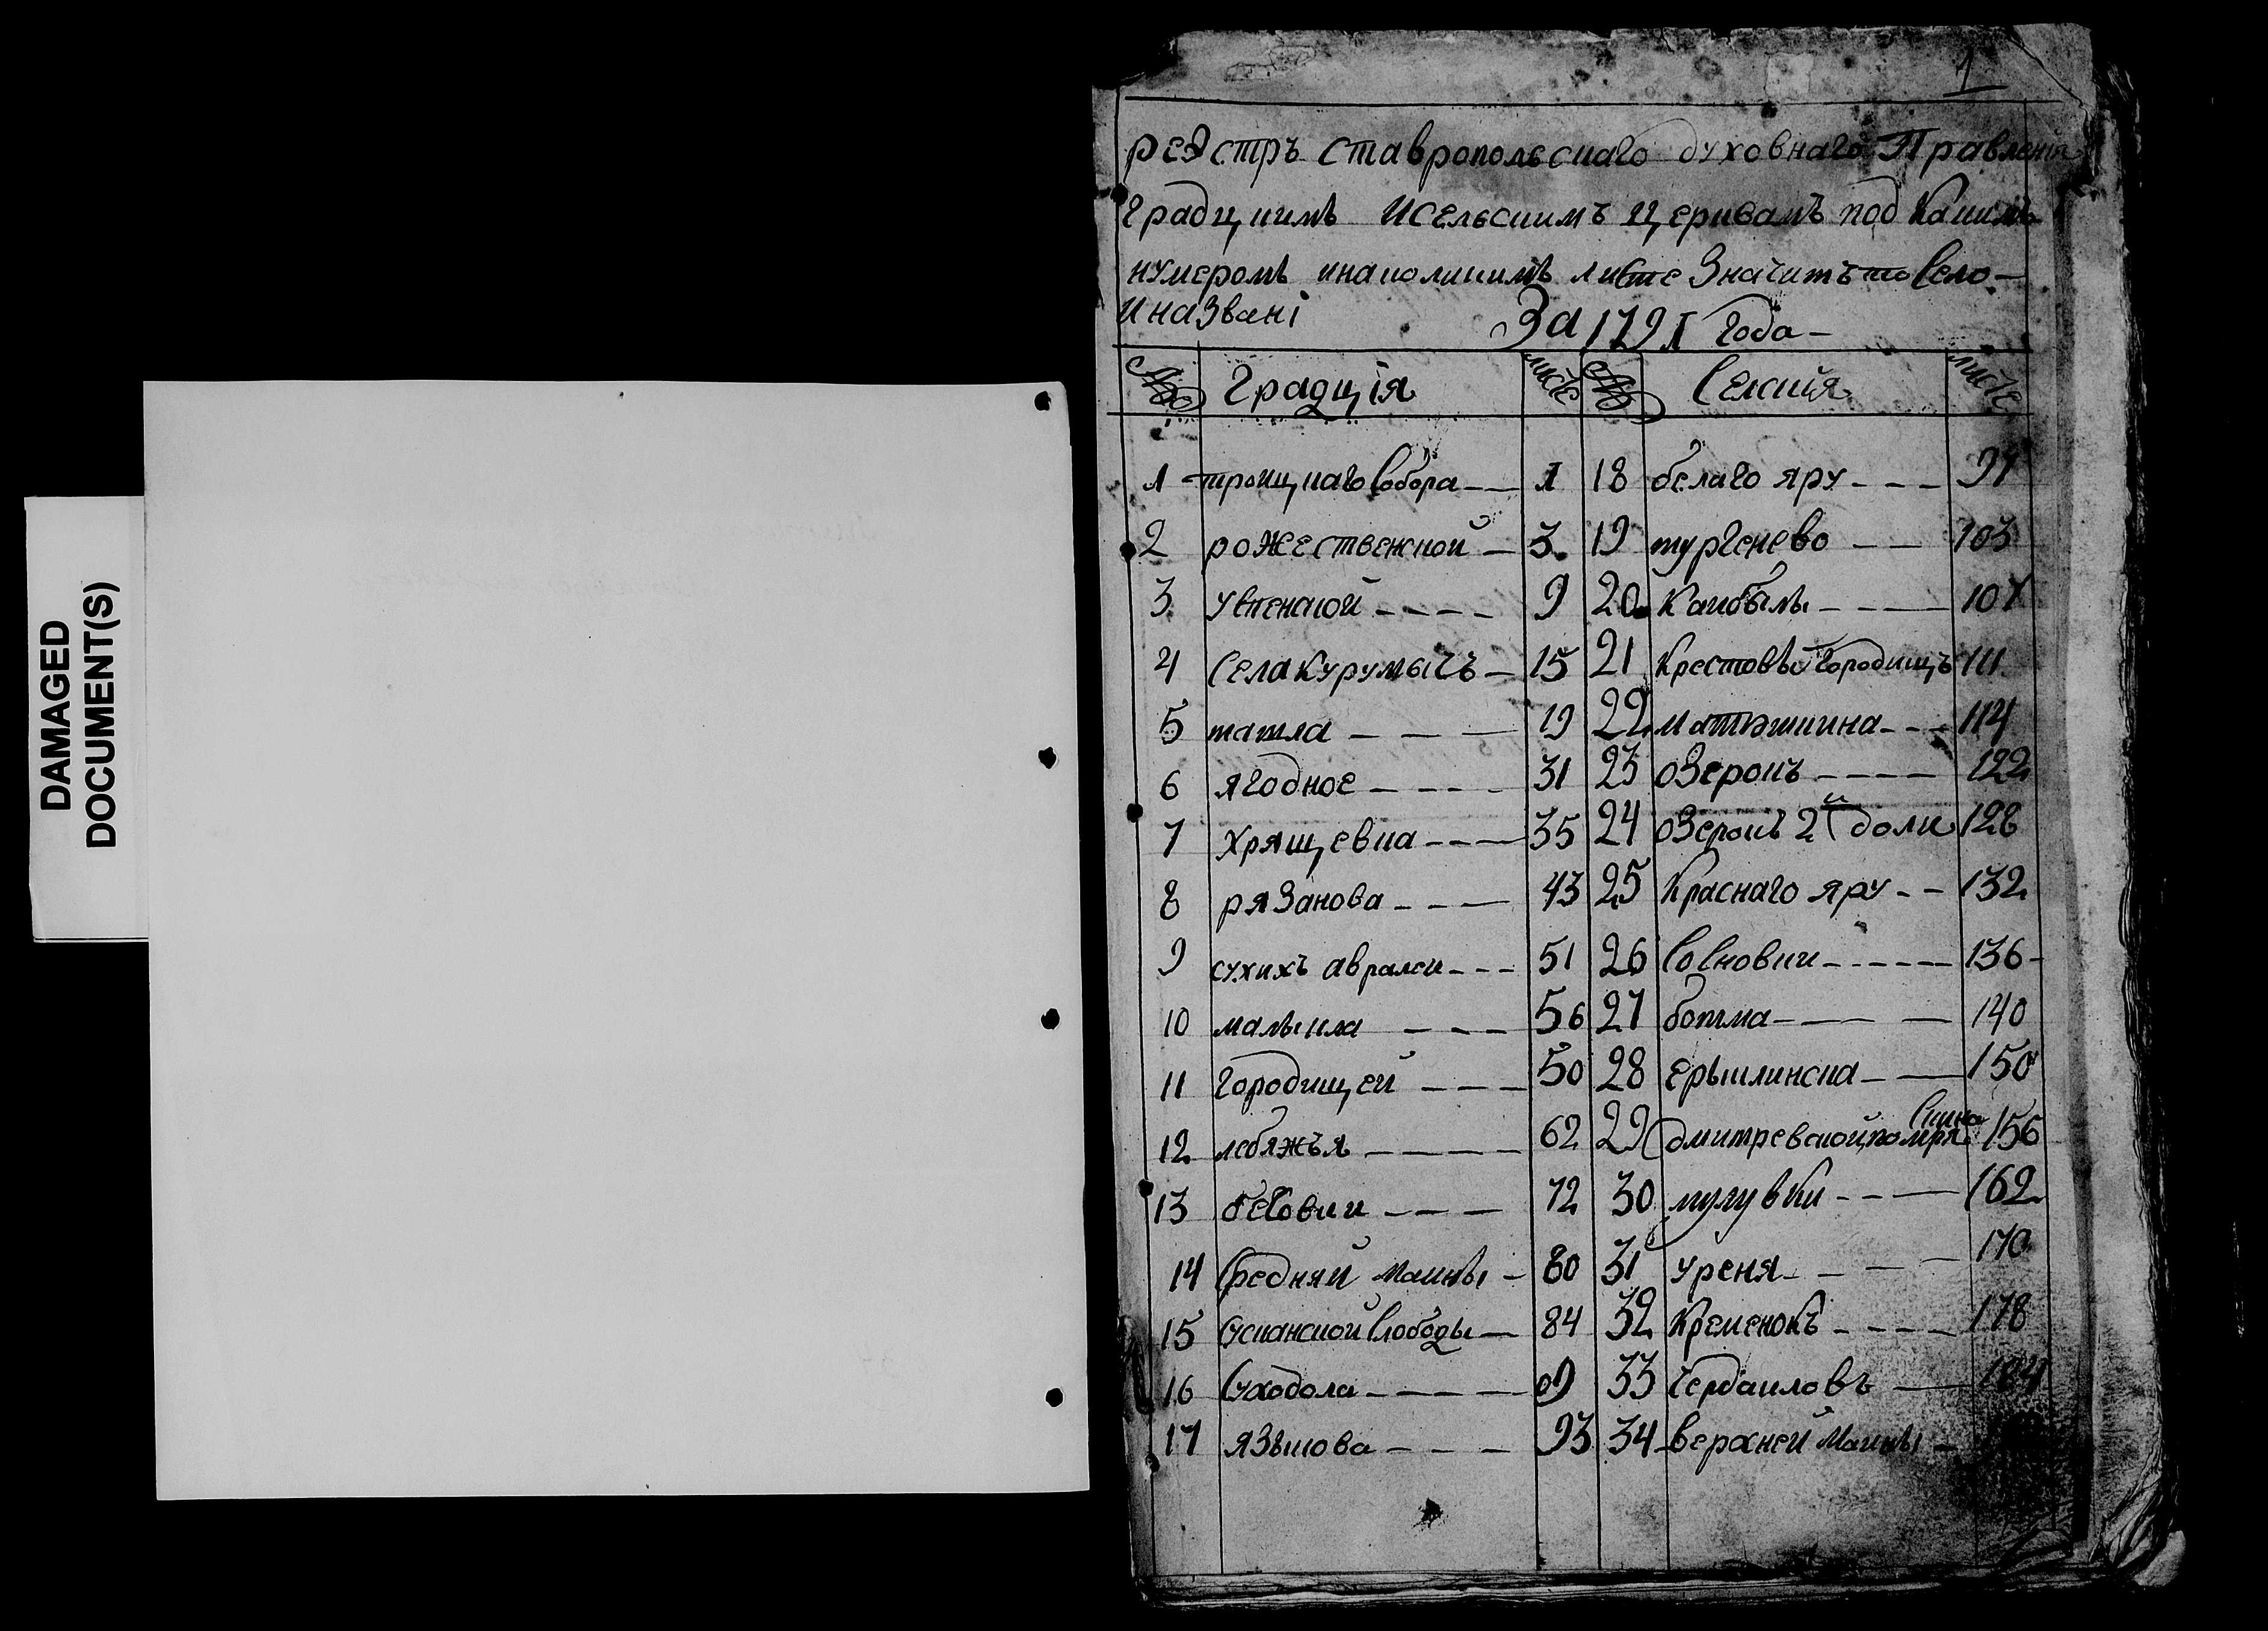 DAMAGED
DOCUMENT(S)
1
реэстръ ставропольскаго духовнаго Правлени
градцкимъ исельскимъ церквамъ под какимъ
нумеромъ инаколикимъ листе Значитъ то Село
и наЗвані
За 1791 года
№ градція листы № Селския листы
1 троицкаго Собора 1 18 белаго яру 97
2 рожественской 3 19 тургенево 103
3 успенской 9 20 Каибелы 107
4 Села Курумычъ 15 21 Крестовы городищъ 111
5 ташла 19 22 матюшкина 114
6 ягодное 31 23 оЗерокъ 122
7 хрящевка 35 24 оЗерокъ 2й доли 128
8 ряЗанова 43 25 Краснаго яру 132
9 сухихъ авралеи 51 26 Сосновки 136
10 малыкла 56 27 ботма 140
11 городищей 50 28 ерыклинска 150
12 лебяжья 62 29 дмитревской помря Скино 156
13 бесовки 72 30 мулувки 162
14 Средней маины 80 31 уреня 170
15 Сусканской Слободы 84 32 Кременокъ 178
16 Суходола 09 33 Чердакловъ 184
17 яЗыкова 93 34 верхней маины